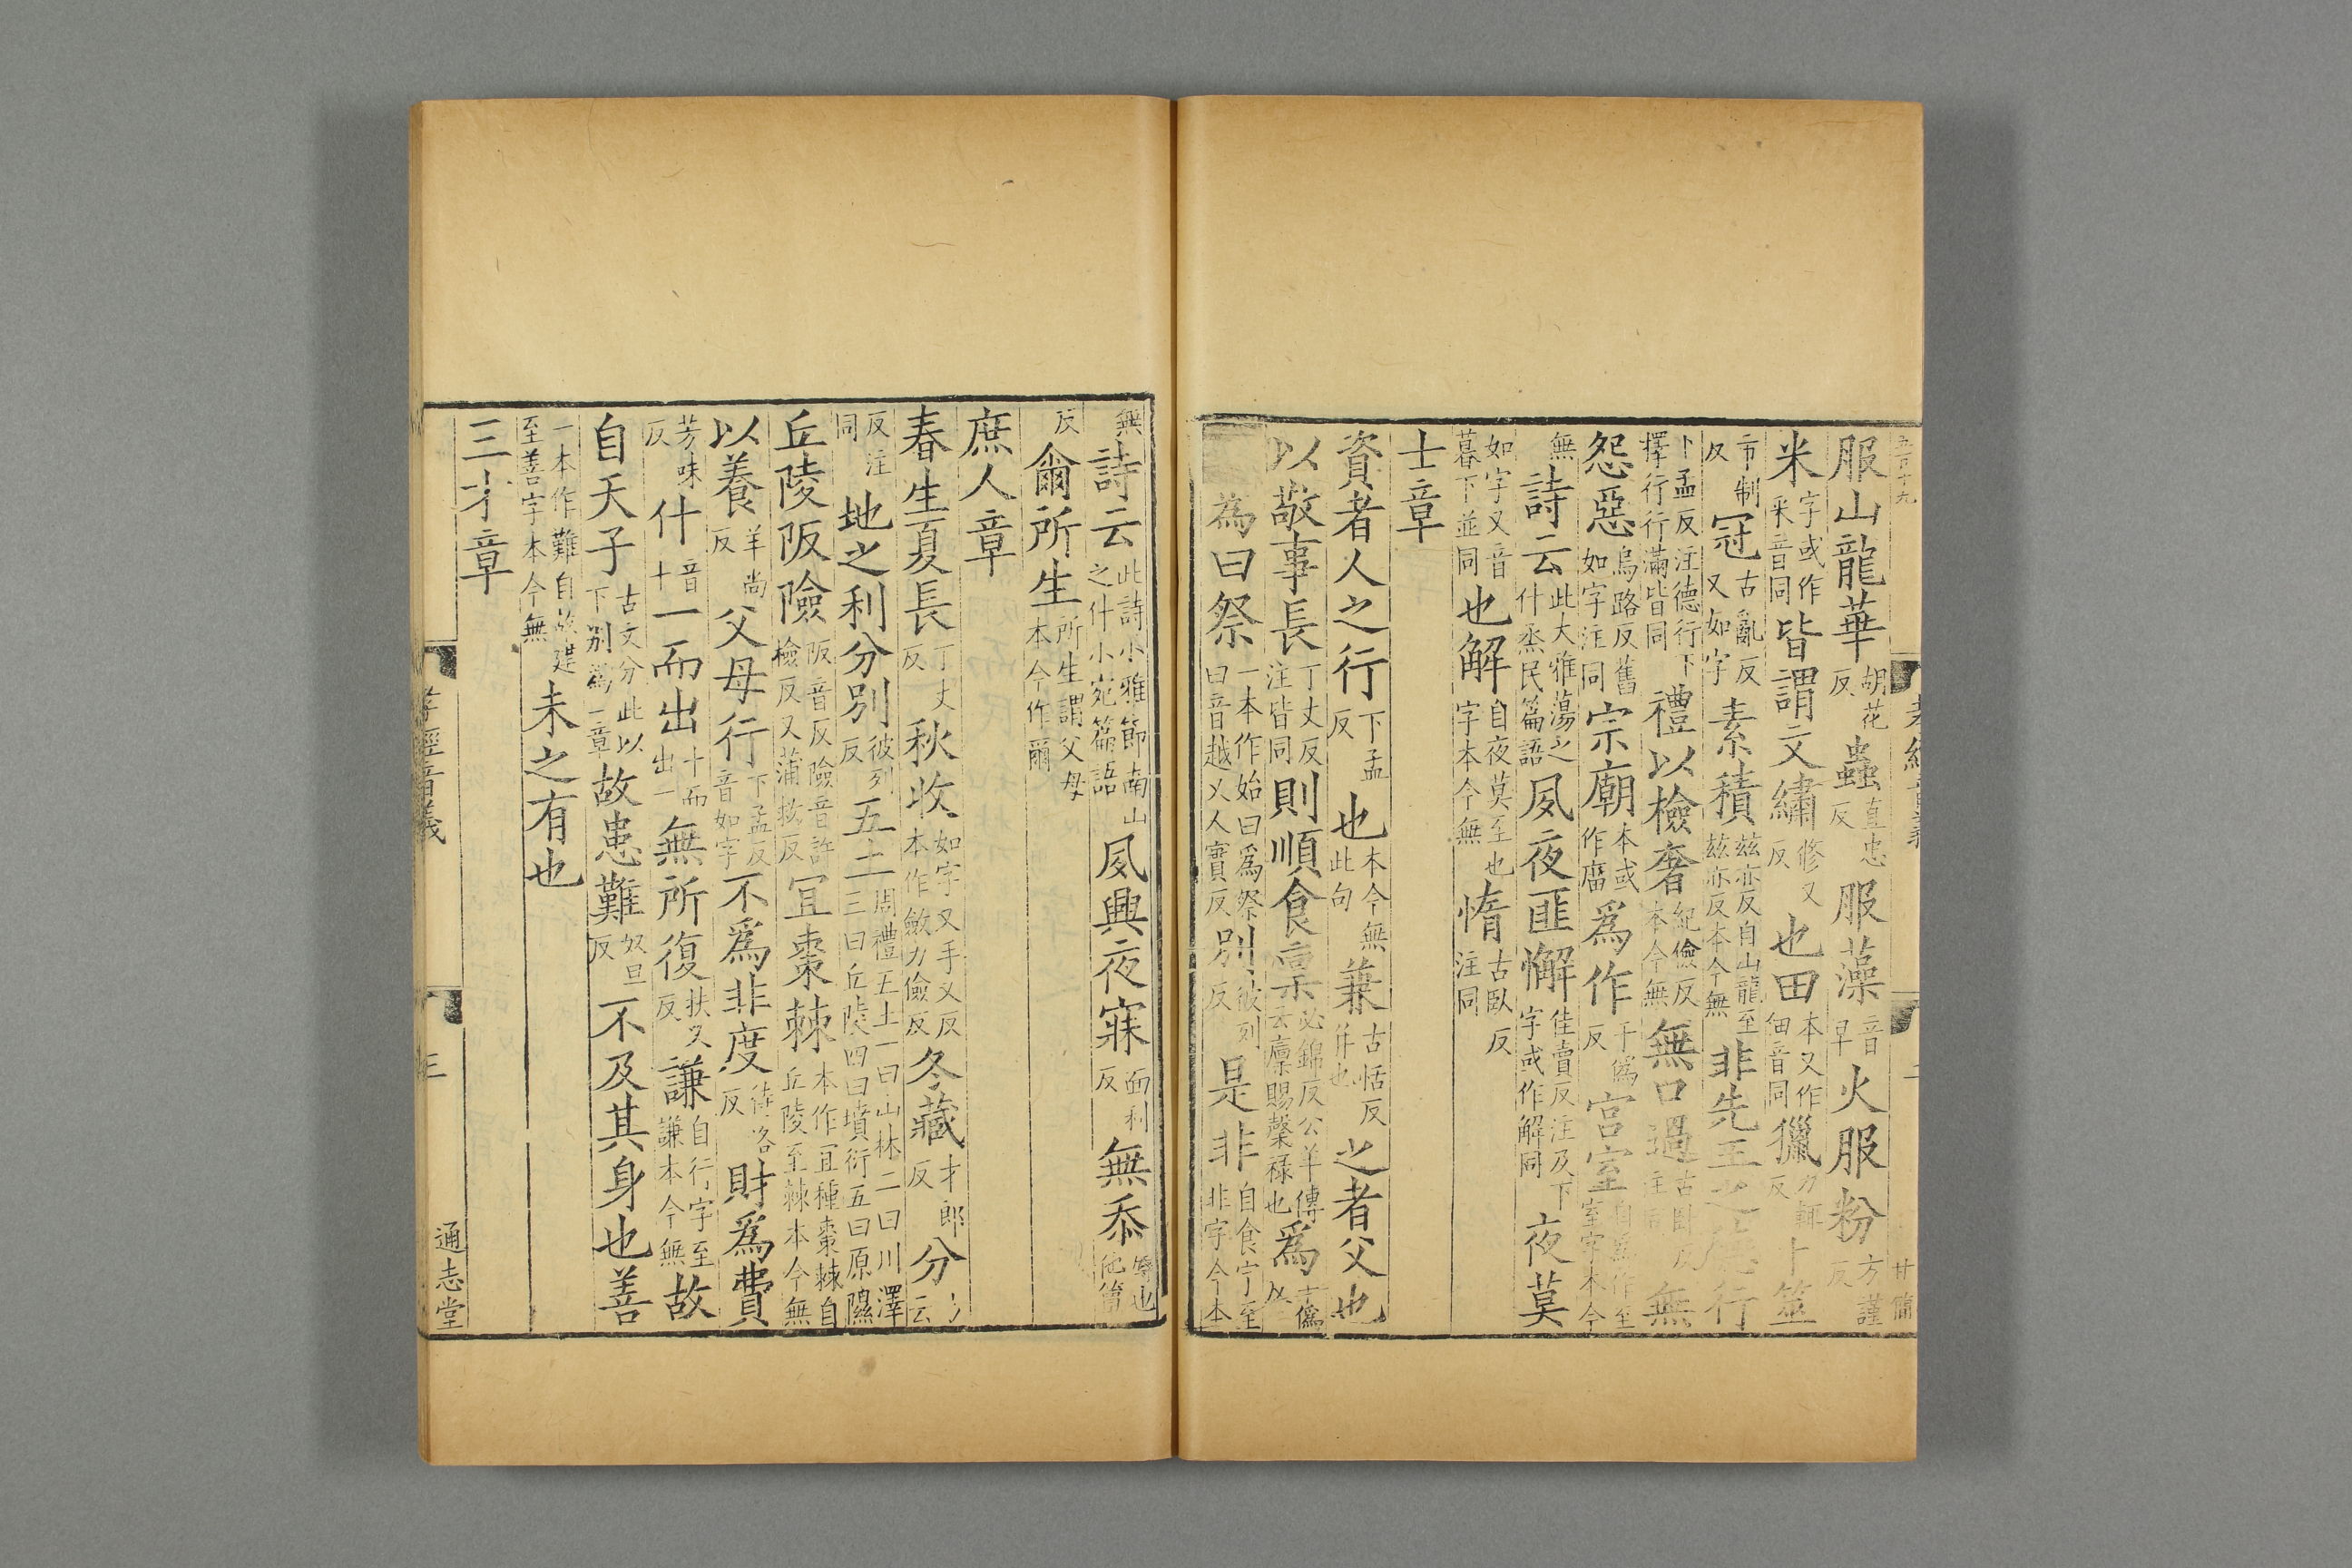 服山龍華胡花反蟲直忠反服藻音早火服粉方謹反
米字或作䋛音同皆謂文繡修又反也田本又作佃音同獵力輒反卜筮
市制反冠古亂反又如字素積茲亦反自山龍至茲亦反本今無非先王之德行
下孟反注德行下擇行行滿皆同禮以檢奢紀儉反本今無無口過古臥反注同無
怨惡烏路反舊如字注同宗廟本或作庿爲作于爲反宮室自爲作至室字本今
無詩云此大雅蕩之什烝民篇語夙夜匪懈佳賣反注及下字或作解同夜莫
如字又音暮下並同也解自夜莫至也字本今無惰古臥反注同
士章
資者人之行下孟反也本今無此句兼古恬反并也之者父也
以敬事長丁丈反注皆同則順食稟必錦反公羊傳云廩賜穀祿也爲于僞反
爲曰祭一本作始曰爲祭曰音越又人實反別彼列反是非自食字至非字今本
無詩云此詩小雅節南山之什小宛篇語夙興夜寐面利反無忝辱也他簟
反爾所生所生謂父母本今作爾
庶人章
春生夏長丁丈反秋收如字又手又反本作斂力儉反冬藏才郎反分云
反注同地之利分別彼列反五土周禮五土一曰山林二曰川澤三曰丘陵四曰墳衍五曰原隰
丘陵阪險阪音反險音許檢反又蒲板反宜棗棘本作宜種棗棘自丘陵至棘本今無
以養羊尚反父母行下孟反音如字不爲非度待洛反財爲費
芳味反什音十一而出十而出一無所復扶又反謙自行字至謙本今無故
自天子古文分此以下別爲一章故患難奴旦反不及其身也善
一本作難自故患至善字本今無未之有也
三才章
孝經音義
三
通志堂